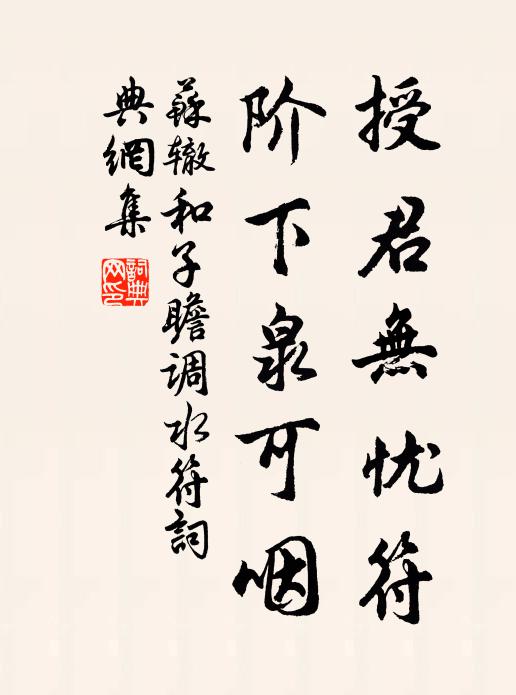 授君無忧符
阶下泉可咽
蘇辙和子瞻调水符詞
典網集
詞典網印